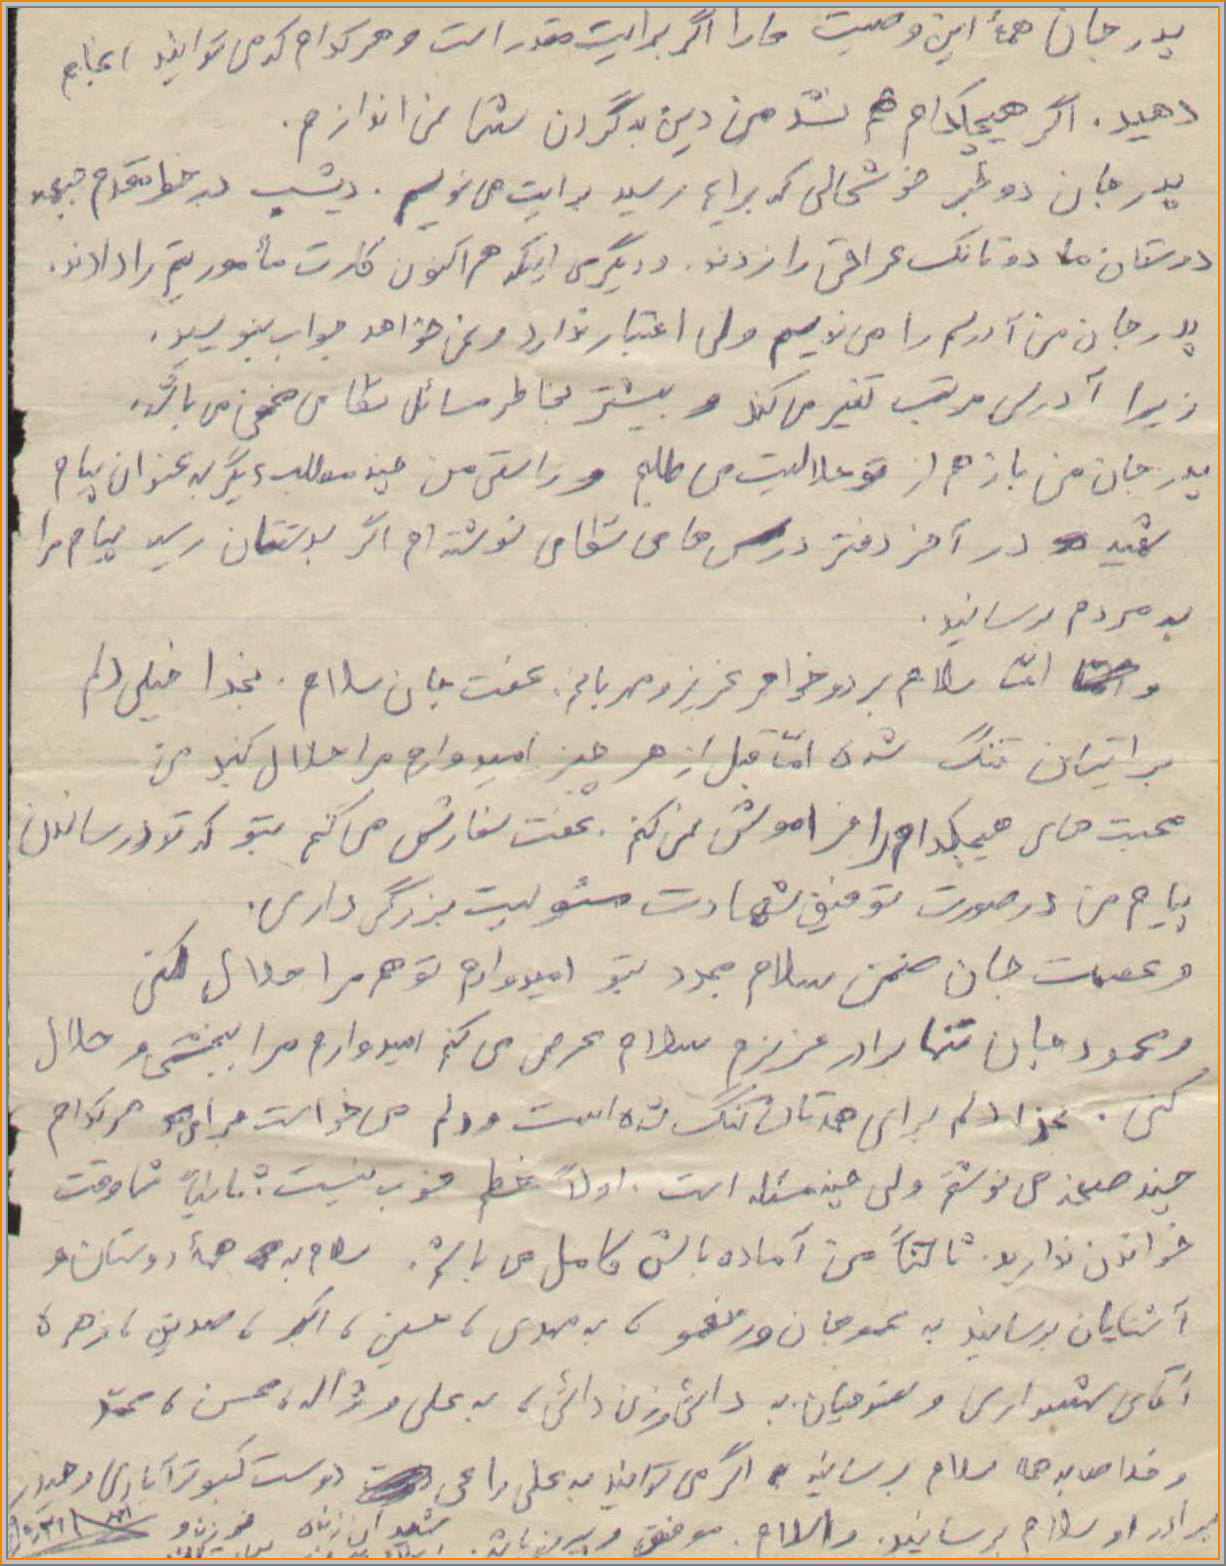 پدر جان همهٔ این وصیت ها را اگر برایت مقدور است و هر کدام که می توانید انجام
دهید. اگر هیچکدام هم نشد من دین به گردن شما نمی اندازم.
پدر جان دو خبر خوشحالی که برایم رسید برایت می نویسم. دیشب در خط مقدم جبهه
دوستان ما دو تانک عراقی را زدند. و دیگری اینکه هم اکنون کارت مأموریتم را دادند.
پدر جان من آدرسم را می نویسم ولی اعتبار ندارد و نمی خواهد جواب بنویسید.
زیرا آدرس مرتب تغیر می کند و بیشتر بخاطر مسائل نظامی مخفی می باشد.
پدر جان من باز هم از تو حلالیت می طلبم و راستی من چند مطلب دیگر به عنوان پیام
شهید در آخر دفتر درس های نظامی نوشته ام اگر بدستتان رسید پیام مرا
به مردم برسانید.
و امّا سلام بر دو خواهر عزیز و مهربانم. عفت جان سلام. بخدا خیلی دلم
برایتان تنگ شده امّا قبل از هر چیز امیدوارم مرا حلال کنید من
محبت های هیچکدام را فراموش نمی کنم. عفت سفارش می کنم بتو که تو در رساندن
پیام من در صورت توفیق شهادت مسئولیت بزرگی داری.
و عصمت جان ضمن سلام مجدد بتو امیدوارم تو هم مرا حلال کنی
و محمود جان تنها برادر عزیزم سلام عرض می کنم امیدوارم مرا ببخشی و حلال
کنی. بخدا دلم برای همه تان تنگ شده است و دلم می خواست برای هر کدام
چند صفحه می نوشتم ولی چند مسئله است. اولاً خطم خوب نیست، ثانیاً شما وقت
خواندن ندارید. ثالثاً من آماده باش کامل می باشم. سلام به همهٔ دوستان و
آشنایان برسانید به عمو جان و زنعمو، به مهدی، حسین، اکبر، مهدیه، زهره
آقای شهسواری و به دائی و زن دائی، به علی و ژاله، محسن، محمد
و خلاصه به همه سلام برسانید. اگر می توانید به علی دوست کبوترآبادی و
برادر او سلام برسانید. والسلام. موفق و پیروز باشید.